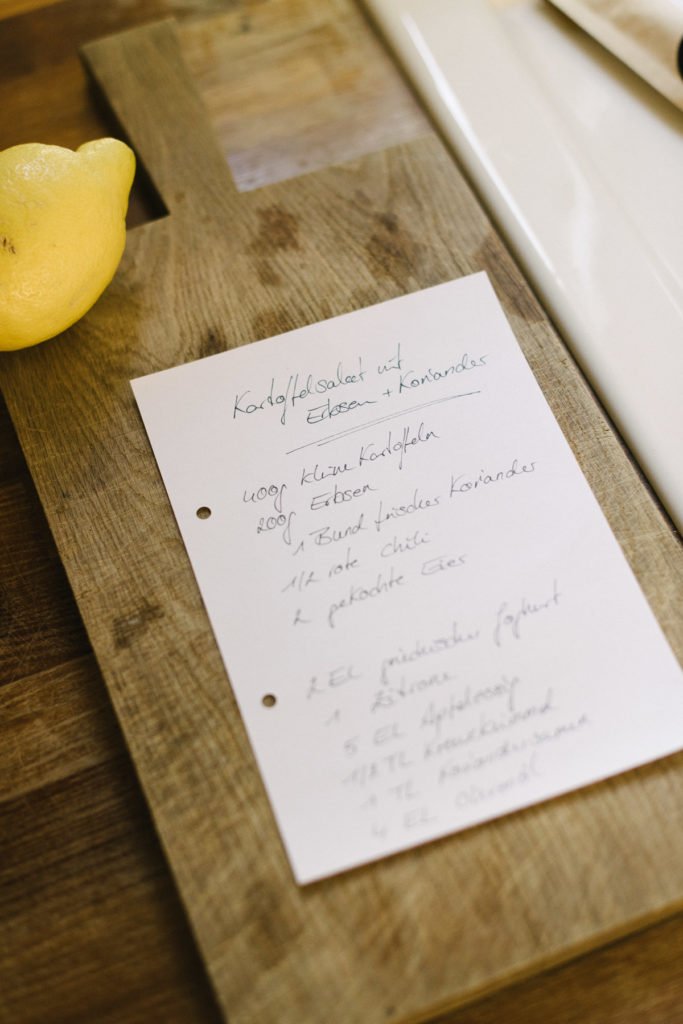 Kartoffelsalat mit
Erbsen + Koriander
400g kleine Kartoffeln
200g Erbsen
1 Bund frischer Koriander
1/2 rote Chili
2 gekochte Eier
2 EL griechischer Joghurt
1 Zitrone
5 EL Apfelessig
1/2 TL Kreuzkümmel
1 TL Koriandersamen
4 EL Olivenöl